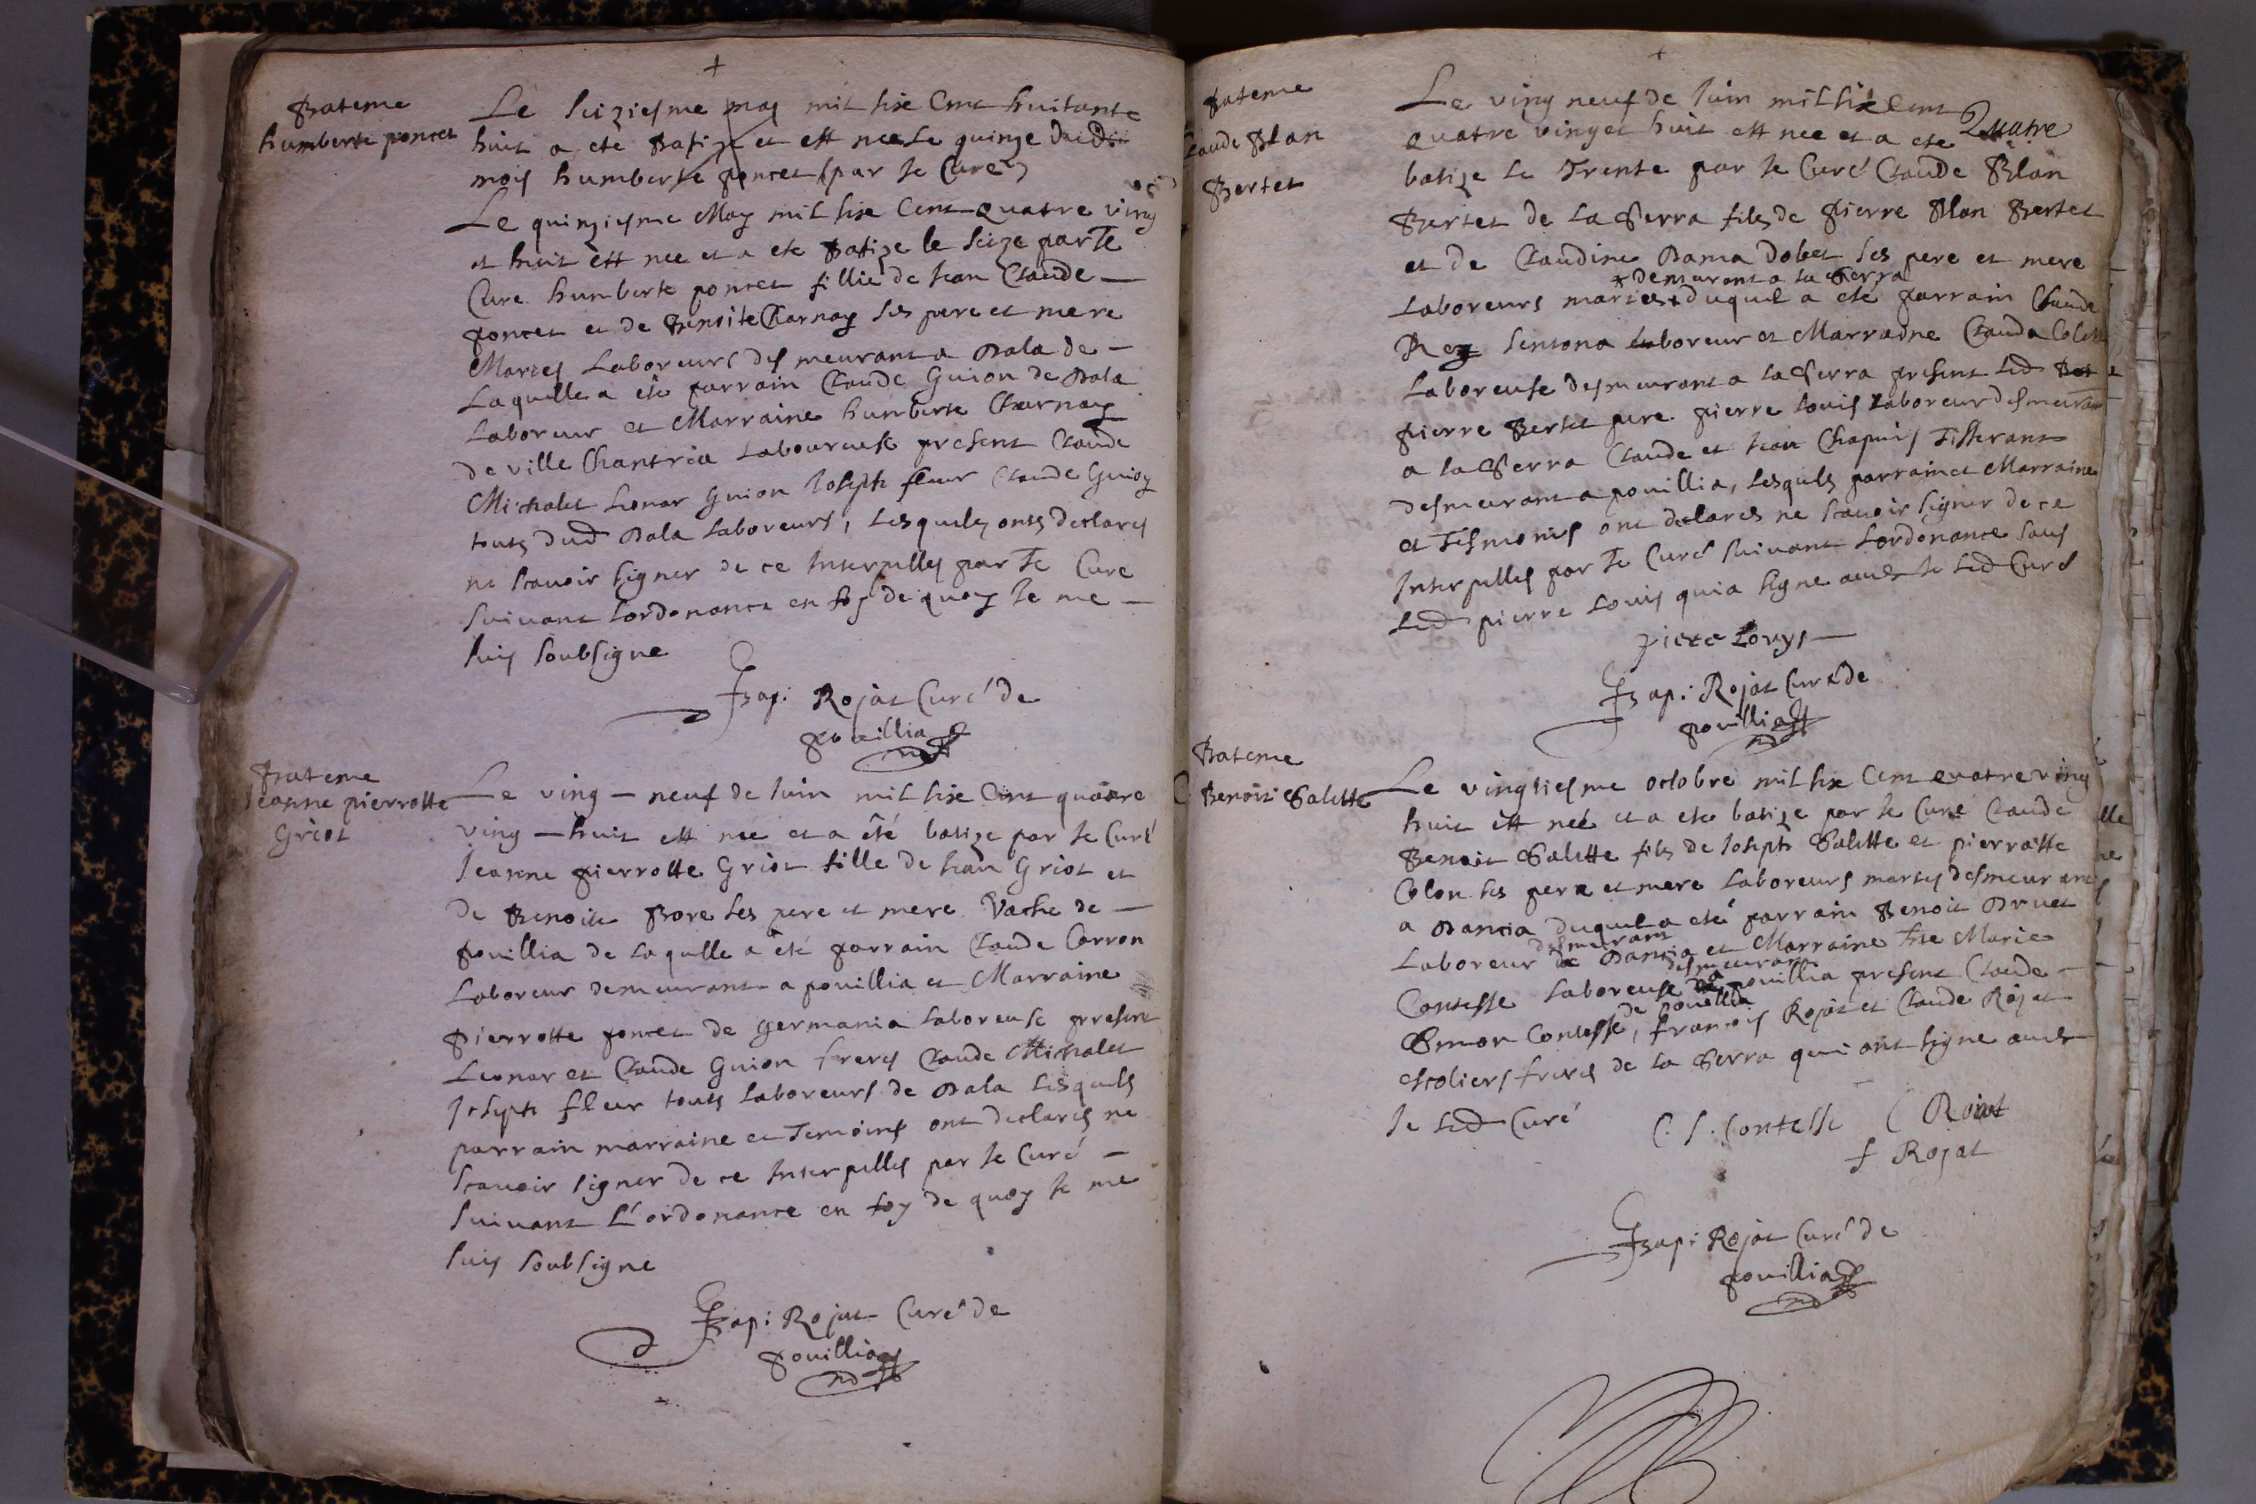 Bateme
humberte poncet
Le seiziesme may mil sixe Cent huitante
huit a ete Batize et est nee le quinze dudi
mois humberte poncet par Je Curé
Le quinziesme May mil sixe Cent quatre ving
et huit est nee et a ete Batize le seize par Je
Cure humberte poncet fillie de Jean Claude
poncet et de Benoite Charnay ses pere et mere
Maries Laboreurs desmeurant a Dala de
Laquelle a ete parrain Claude Guion de Dala
Laboreur et Marraine humberte Charnay
de ville Chantria Laboureuse present Claude
Michalet Lionar Guion Joseph fleur Claude Guion
touts dud Dala Laboreurs, Lesquels onts declares
ne scavoir signer de ce Interpelles par Je Cure
suivant Lordonance en foy de quoy Je me
suis soubsigne
Bapt: Rojat Curé de
pouillia
Bateme
Jeanne pierrotte
Griot
Le ving neuf de Juin mil sixe Cent quatre
ving huit est nee et a été batize par Je Curé
Jeanne pierrotte Griot fille de Jean Griot et
de Benoite Bore ses pere et mere Vache de
pouillia de Laquelle a été parrain Claude Carron
Laboreur demeurant a pouillia et Marraine
pierrotte poncet de Germania Laboreuse present
Leonar et Claude Guion freres Claude Michalet
Joseph fleur touts Laboreurs de Dala Lesquels
parrain marraine et Temoins ont declares ne
scavoir signer de ce Interpelles par Je Curé
suivant L'ordonance en foy de quoy Je me
suis soubsigne
Bapt: Rojat Curé de
pouillia
Bateme
Claude Blan
Bertet
Le ving neuf de Juin mil sixe Cent Quatre
quatre vinget huit est nee et a ete
batize le Trente par Je Curé Claude Blan
Bertet de La Serra fils de Pierre Blan Bertet
et de Claudine Dama Dobet ses pere et mere
* demeurant a la Serra
Laboreurs maries * duquel a ete parrain Claude
Rey Sentona Laboreur et Marraine Clauda Colet
Laboreuse desmeurant a la Serra present Led
pierre Bertet pere pierre Louis Laboreur desmeurant
a la Serra Claude et Jean Chapuis Tisserant
desmeurant a pouillia, Lesquels parrain et Marraine
et Tesmoins ont declares ne scavoir signer de ce
Interpelles par Je Curé suivant Lordonance sauf
Led pierre Louis qui a signe avec Je Led Curé
piere Lovys
Bapt: Rojat Curé de
pouillia
Bateme
C Benoit Salette
Le vingtiesme octobre mil sixe Cent quatre ving
huit est neé et a ete batize par Je Cure Claude
Benoit Salette fils de Joseph Salette et pierrotte
Colon ses pere et mere Laboreurs maries desmeurant
a Dancia duquel a eté parrain Benoit Druet
desmeurant
Laboreur de Dancia et Marraine Marie
desmeurant
Contesse Laboreuse a pouillia present Claude
de pouillia
Simon Contesse, francois Rojat et Claude Rojat
escoliers freres de la Serra qui ont signe avec
Je Led Curé
C. S. Contesse C Rojat
f Rojat
Bapt: Rojat Curé de
pouillia